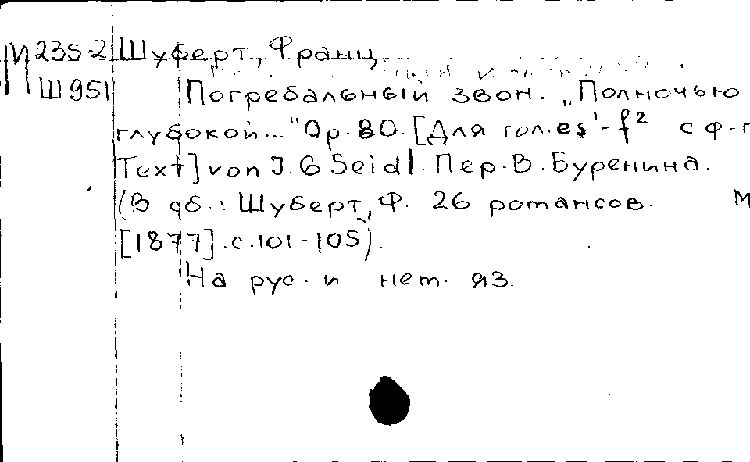 М 235-2 Шуберт, Франц
Ш951 Погребальный звон. „Полночью
глубокой..." Op. 80. [Для гол. es'-f² с ф-п
Text] von J. G Seidl. Пер. В. Буренина.
(В сб.: Шуберт, Ф. 26 романсов. М
[1877]. с. 101-105).
На рус. и нем. яз.